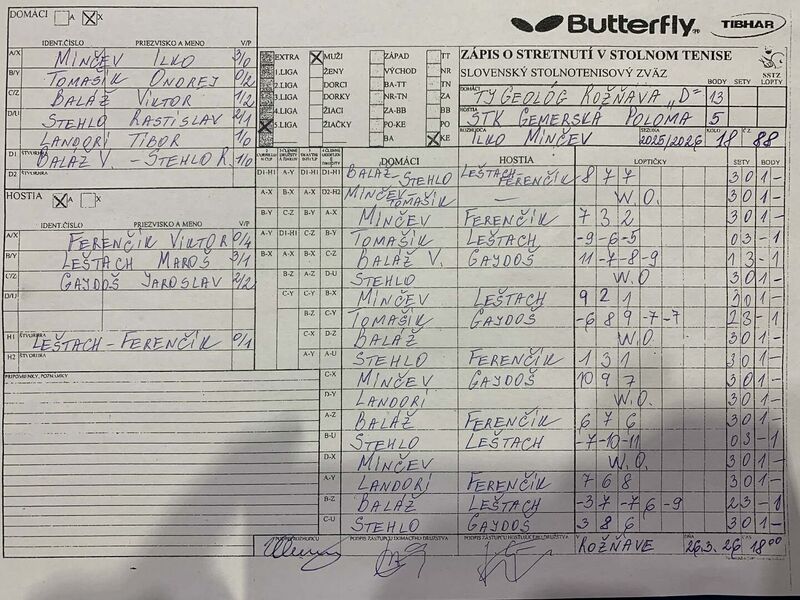 DOMÁCI A X
Butterfly TIBHAR
IDENT.ČÍSLO PRIEZVISKO A MENO V/P
A/X MINČEV ILKO 3/0
B/Y TOMAŠIK ONDREJ 0/2
C/Z BALÁŽ VIKTOR 1/2
D/U STEHLO RASTISLAV 2/1
LANDORI TIBOR 1/0
D1 ŠTVORHRA BALÁŽ V. - STEHLO R. 1/0
D2 ŠTVORHRA
EXTRA X MUŽI ZÁPAD TT
1.LIGA ŽENY VÝCHOD NR
2.LIGA DORCI BA-TT TN
3.LIGA DORKY NR-TN ZA
4.LIGA ŽIACI ZA-BB BB
X 5.LIGA ŽIAČKY PO-KE PO
BA X KE
ZÁPIS O STRETNUTÍ V STOLNOM TENISE
SLOVENSKÝ STOLNOTENISOVÝ ZVÄZ
SSTZ
BODY SETY LOPTY
DOMÁCI TJ GEOLÓG ROŽŇAVA „D" 13
HOSTIA STK GEMERSKÁ POLOMA 5
ROZHODCA ILKO MINČEV SEZÓNA 2025/2026 KOLO 18 Č.Z. 88
HOSTIA X
IDENT.ČÍSLO PRIEZVISKO A MENO V/P
A/X FERENČIK VIKTOR 0/4
B/Y LEŠTACH MAROŠ 3/1
C/Z GAYDOŠ JAROSLAV 2/2
D/U
H1 ŠTVORHRA LEŠTACH - FERENČÍK 0/1
H2 ŠTVORHRA
PRIPOMIENKY, POZNÁMKY
DOMÁCI HOSTIA LOPTIČKY SETY BODY
D1-H1 A-Y D1-H1 D1-H1 BALÁŽ - STEHLO LEŠTACH - FERENČÍK 8 7 7 3 0 1 -
A-X B-X A-X D2-H2 MINČEV - TOMAŠIK - W.O. 3 0 1 -
B-Y C-Z B-Y A-X MINČEV FERENČÍK 7 3 2 3 0 1 -
A-Y D1-H1 C-Z B-Y TOMAŠIK LEŠTACH -9 -6 -5 0 3 - 1
B-X A-X C-Z BALÁŽ V. GAYDOŠ 11 -7 -8 -9 1 3 - 1
B-Z A-Z D-U STEHLO W.O 3 0 1 -
C-Y C-Y B-X MINČEV LEŠTACH 9 2 1 3 0 1 -
B-Z C-Y TOMAŠIK GAYDOŠ -6 8 9 -7 -7 2 3 - 1
C-X D-Z BALÁŽ W.O 3 0 1 -
A-Y A-U STEHLO FERENČÍK 1 3 1 3 0 1 -
C-X MINČEV GAYDOŠ 10 9 7 3 0 1 -
D-Y LANDORI W.O. 3 0 1 -
A-Z BALÁŽ FERENČÍK 6 7 6 3 0 1 -
B-U STEHLO LEŠTACH -7 -10 -11 0 3 - 1
D-X MINČEV W.O. 3 0 1 -
A-Y LANDORI FERENČÍK 7 6 8 3 0 1 -
B-Z BALÁŽ LEŠTACH -3 7 -7 6 -9 2 3 - 1
C-U STEHLO GAYDOŠ 3 8 6 3 0 1 -
PODPIS ROZHODCU PODPIS ZÁSTUPCU DOMÁCEHO DRUŽSTVA PODPIS ZÁSTUPCU HOSŤUJÚCEHO DRUŽSTVA V ROŽŇAVE DŇA 26.3. 26 ČAS 18 00